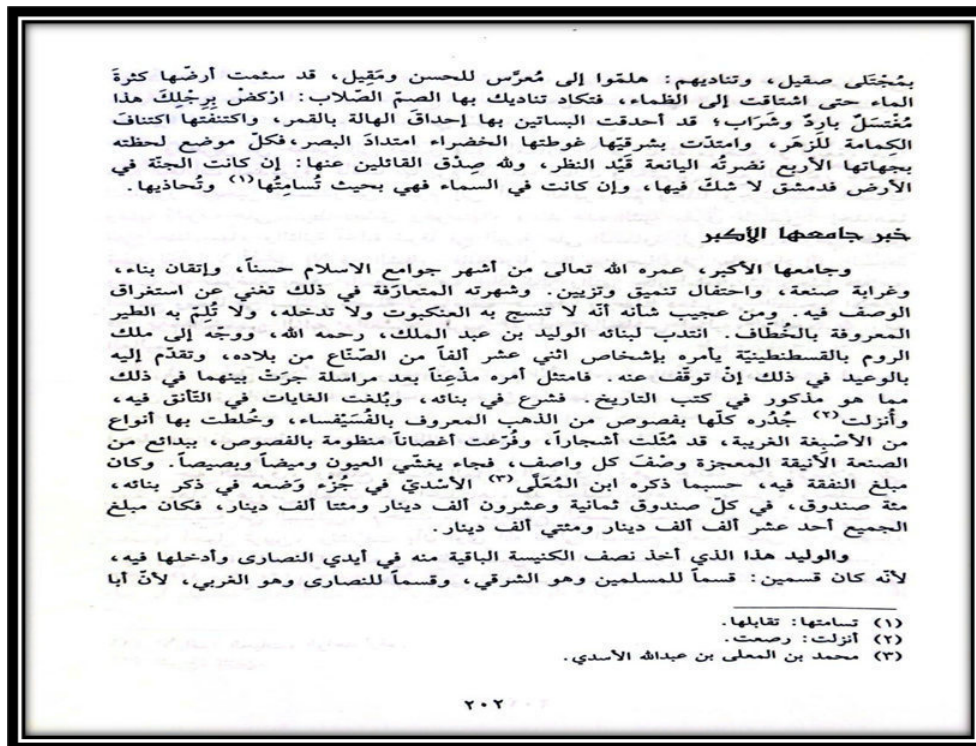 بمُجْتَلى صقيل، وتناديهم: هلمّوا إلى مُعرَّس للحسن ومَقِيل، قد سئمت أرضُها كثرةَ
الماء حتى اشتاقت إلى الظماء، فتكاد تناديك بها الصمّ الصّلاب: ارْكضْ بِرِجْلِكَ هذا
مُغْتسَلٌ بارِدٌ وشَرَاب؛ قد أحدقت البساتين بها إحداقَ الهالة بالقمر، واكتنفتها اكتنافَ
الكِمامة للزهَر، وامتدّت بشرقيّها غوطتها الخضراء امتدادَ البصر،فكلّ موضع لحظته
بجهاتها الأربع نضرتُه اليانعة قَيْد النظر، ولله صِدْق القائلين عنها: إن كانت الجنّة في
الأرض فدمشق لا شكّ فيها، وإن كانت في السماء فهي بحيث تُسامِتُها(١) وتُحاذيها.
خبر جامعها الأكبر
وجامعها الأكبر، عمره الله تعالى من أشهر جوامع الاسلام حسناً، وإتقان بناء،
وغرابة صنعة، واحتفال تنميق وتزيين. وشهرته المتعارَفة في ذلك تغني عن استغراق
الوصف فيه. ومن عجيب شأنه أنّه لا تنسج به العنكبوت ولا تدخله، ولا تُلِمّ به الطير
المعروفة بالخُطّاف. انتدب لبنائه الوليد بن عبد الملك، رحمه الله، ووجّه إلى ملك
الروم بالقسطنطينيّة يأمره بإشخاص اثني عشر ألفاً من الصّنّاع من بلاده، وتقدّم إليه
بالوعيد في ذلك إنْ توقّف عنه. فامتثل أمره مذْعِناً بعد مراسلة جرَتْ بينهما في ذلك
مما هو مذكور في كتب التاريخ. فشرع في بنائه، وبُلغت الغايات في التّأنق فيه،
وأُنزلت(٢) جُدُره كلّها بفصوص من الذهب المعروف بالفُسَيْفساء، وخُلطت بها أنواع
من الأصْبِغة الغريبة، قد مُثّلت أشجاراً، وفُرّعت أغصاناً منظومة بالفصوص، ببدائع من
الصنعة الأنيقة المعجزة وصْفَ كل واصف، فجاء يغشّي العيون وميضاً وبصيصاً. وكان
مبلغ النفقة فيه، حسبما ذكره ابن المُعَلّى(٣) الأسْديّ في جُزْء وَضعه في ذكر بنائه،
مئة صندوق، في كلّ صندوق ثمانية وعشرون ألف دينار ومئتا ألف دينار، فكان مبلغ
الجميع أحد عشر ألف ألف دينار ومئتي ألف دينار.
والوليد هذا الذي أخذ نصف الكنيسة الباقية منه في أيدي النصارى وأدخلها فيه،
لأنّه كان قسمين: قسماً للمسلمين وهو الشرقي، وقسماً للنصارى وهو الغربي، لأنّ أبا
(١) تسامتها: تقابلها.
(٢) أنزلت: رصعت.
(٣) محمد بن المعلى بن عبدالله الأسدي.
٢٠٢